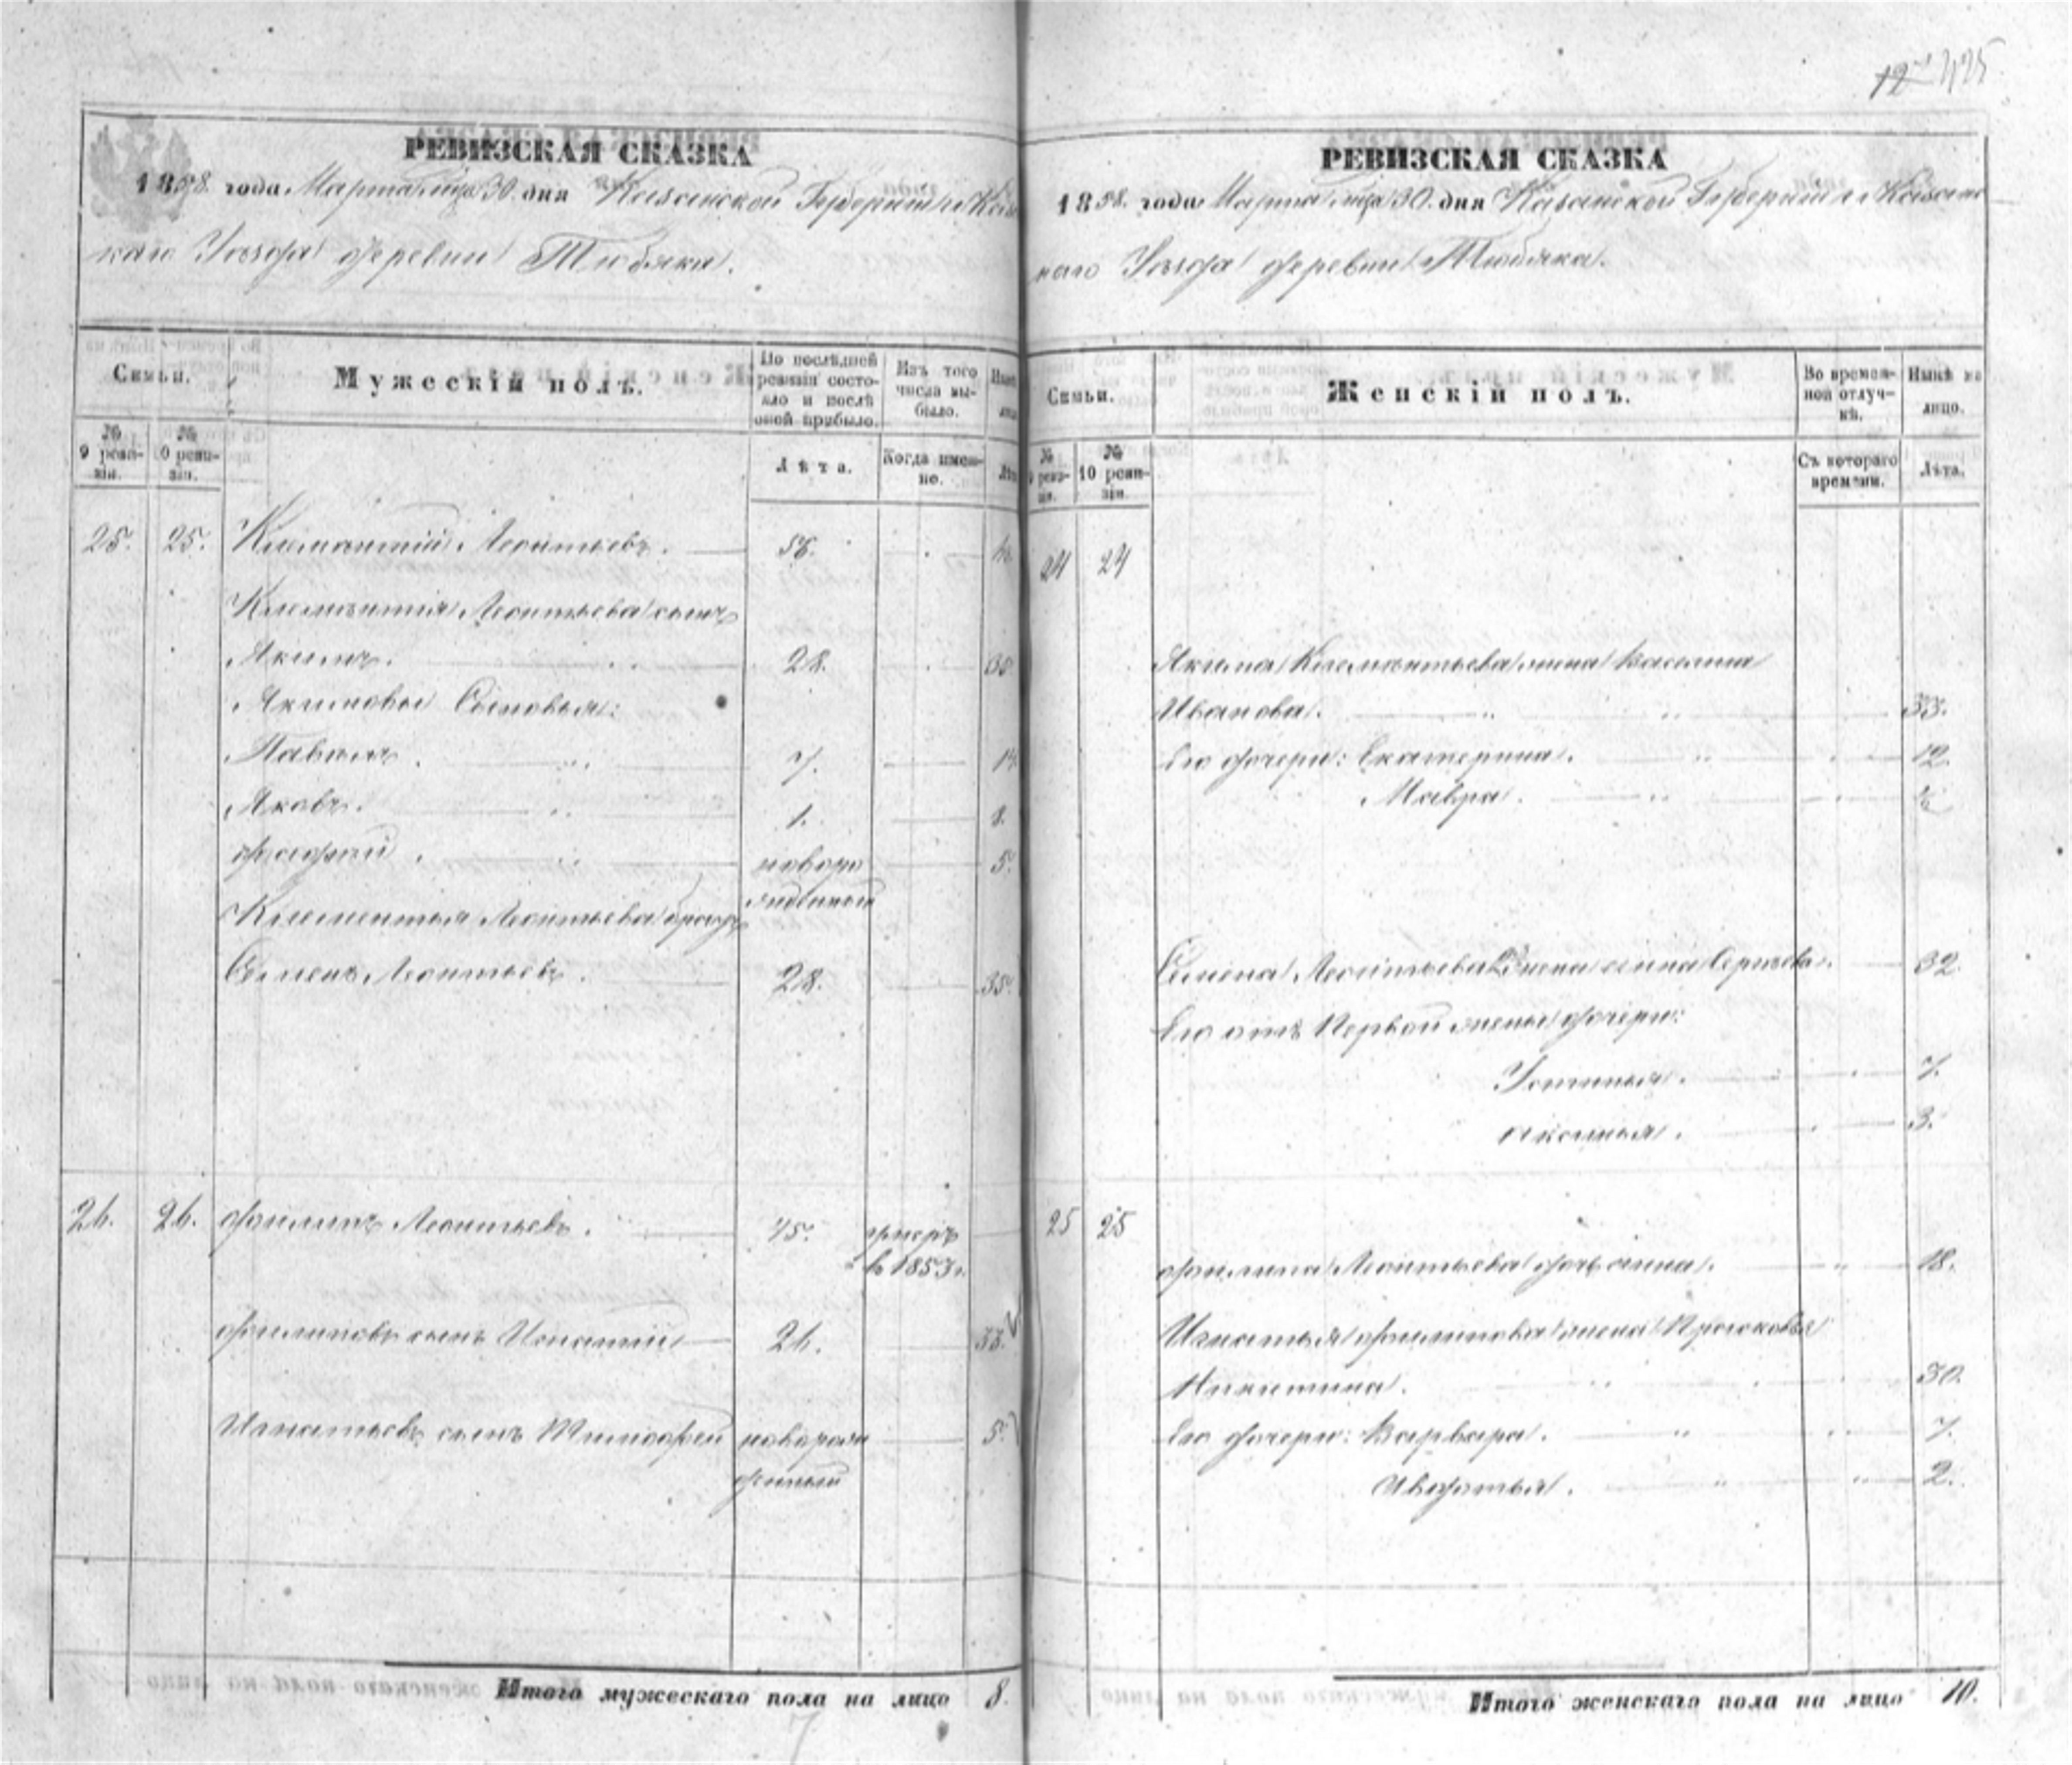 РЕВИЗСКАЯ СКАЗКА
1858. года Марта м͠ца 30. дня Казанской Губернии и Казан
каго Уезда деревни Тюбяка.
Семьи.
Мужескій полъ.
По послѣдней ревизіи состояло и послѣ оной прибыло.
Изъ того числа выбыло.
№ 9 ревизіи.
№ 10 ревизіи.
Лѣта.
Когда именно.
25. 25. Клементій Леонтьевъ. 56.
Клементія Леонтьева сынъ
Якимъ. 28.
Якимовы Сыновья:
Павелъ. 7. 14
Яковъ. 1. 8.
Фадей. новоро 5.
жденный
Клементья Леонтьева братъ
Семенъ Леонтьевъ. 28. 35.
26. 26. Филипъ Леонтьевъ. 45. умеръ
въ 1853 г.
Филиповъ сынъ Игнатій 26. 33.
Игнатьевъ сынъ Тимофей новорож 5.
денный
Итого мужескаго пола на лицо 8.
РЕВИЗСКАЯ СКАЗКА
1858. года Марта м͠ца 30. дня Казанской Губернии и Казанс
каго Уезда деревни Тюбяка.
Семьи.
Женскій полъ.
Во временной отлучкѣ.
Нынѣ на лицо.
№ 9 ревизіи.
№ 10 ревизіи.
Съ котораго времени.
Лѣта.
24 24
Якима Клементьева жена Василиса
Иванова. 33.
Его дочери: Екатерина. 12.
Мавра.
Семена Леонтьева жена Анна Сергѣева. 32.
Его отъ Первой жены дочери:
Устинья. 7.
Аксинья. 3.
25 25
Филипа Леонтьева дочь Анна. 18.
Игнатья Филипова жена Прасковья
Никитина. 30.
Его дочери: Варвара. 7.
Авдотья. 2.
Итого женскаго пола на лицо 10.